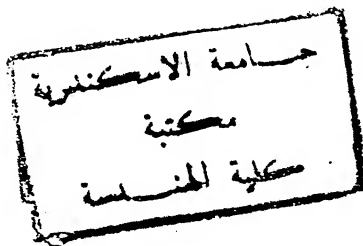 جامعة الاسكندرية
مكتبة
كلية الهندسة